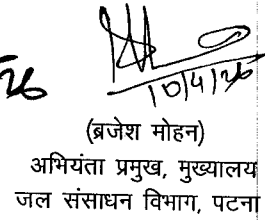 10/4/26
(ब्रजेश मोहन)
अभियंता प्रमुख, मुख्यालय
जल संसाधन विभाग, पटना